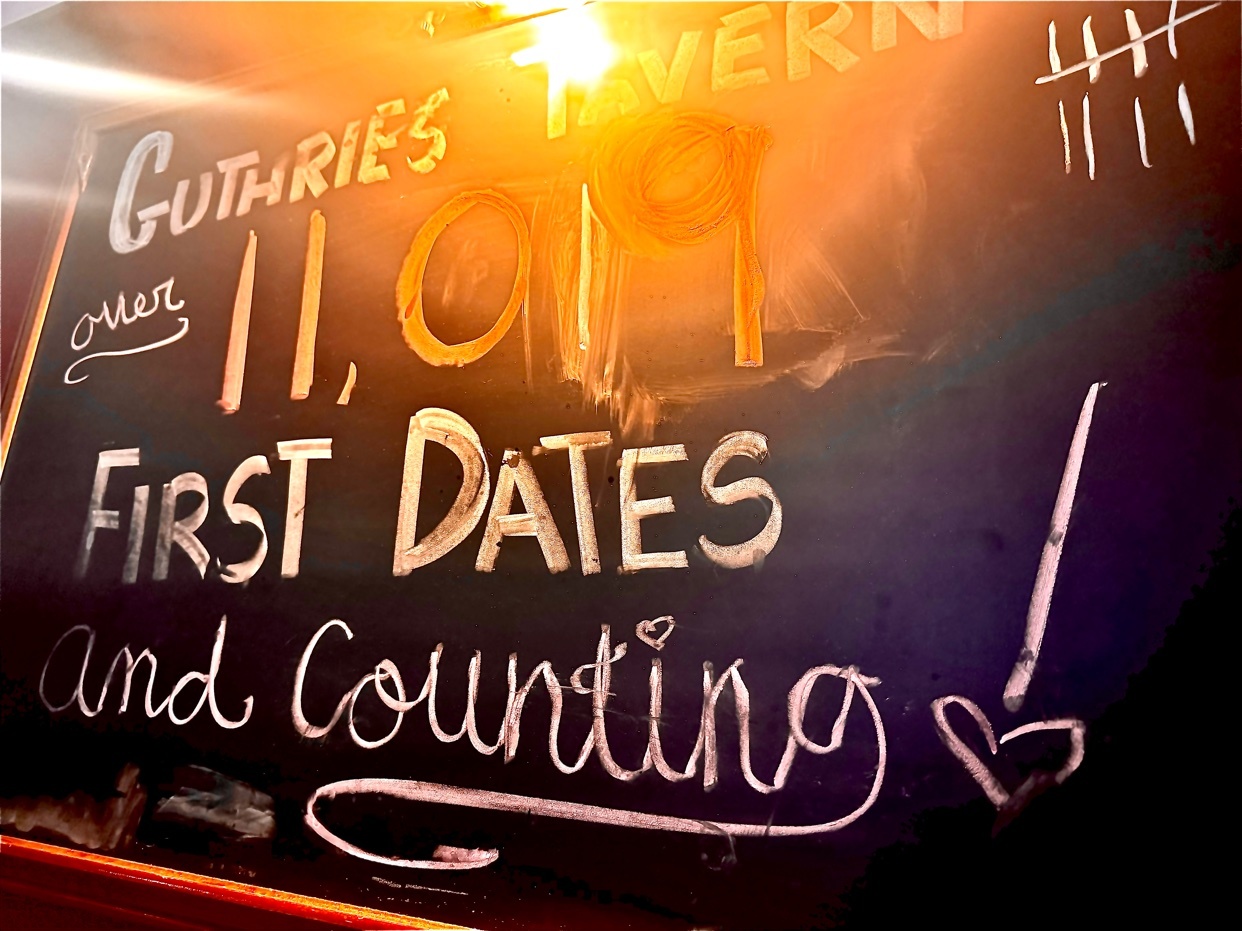 GUTHRIES TAVERN
over 11,019
FIRST DATES
and Counting!